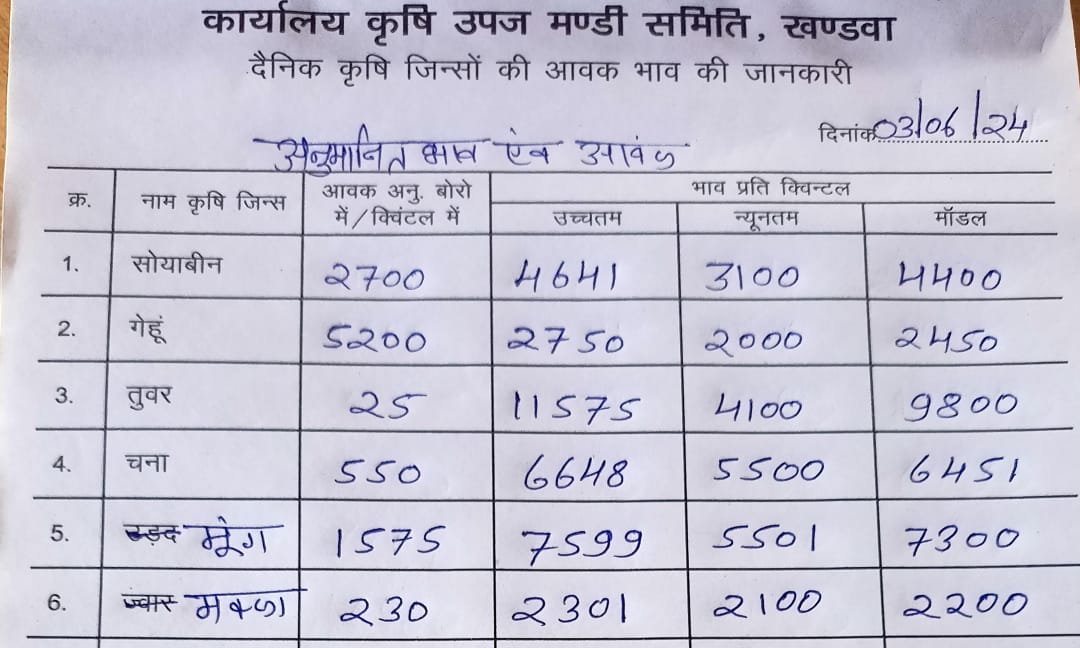 कार्यालय कृषि उपज मण्डी समिति, खण्डवा
दैनिक कृषि जिन्सों की आवक भाव की जानकारी
दिनांक 03/06/24
अनुमानित भाव ऐंव आवक
क्र. नाम कृषि जिन्स आवक अनु. बोरो में/क्विंटल में भाव प्रति क्विन्टल
उच्चतम न्यूनतम मॉडल
1. सोयाबीन 2700 4641 3100 4400
2. गेहूं 5200 2750 2000 2450
3. तुवर 25 11575 4100 9800
4. चना 550 6648 5500 6451
5. उड़द मूंग 1575 7599 5501 7300
6. ज्वार मक्का 230 2301 2100 2200